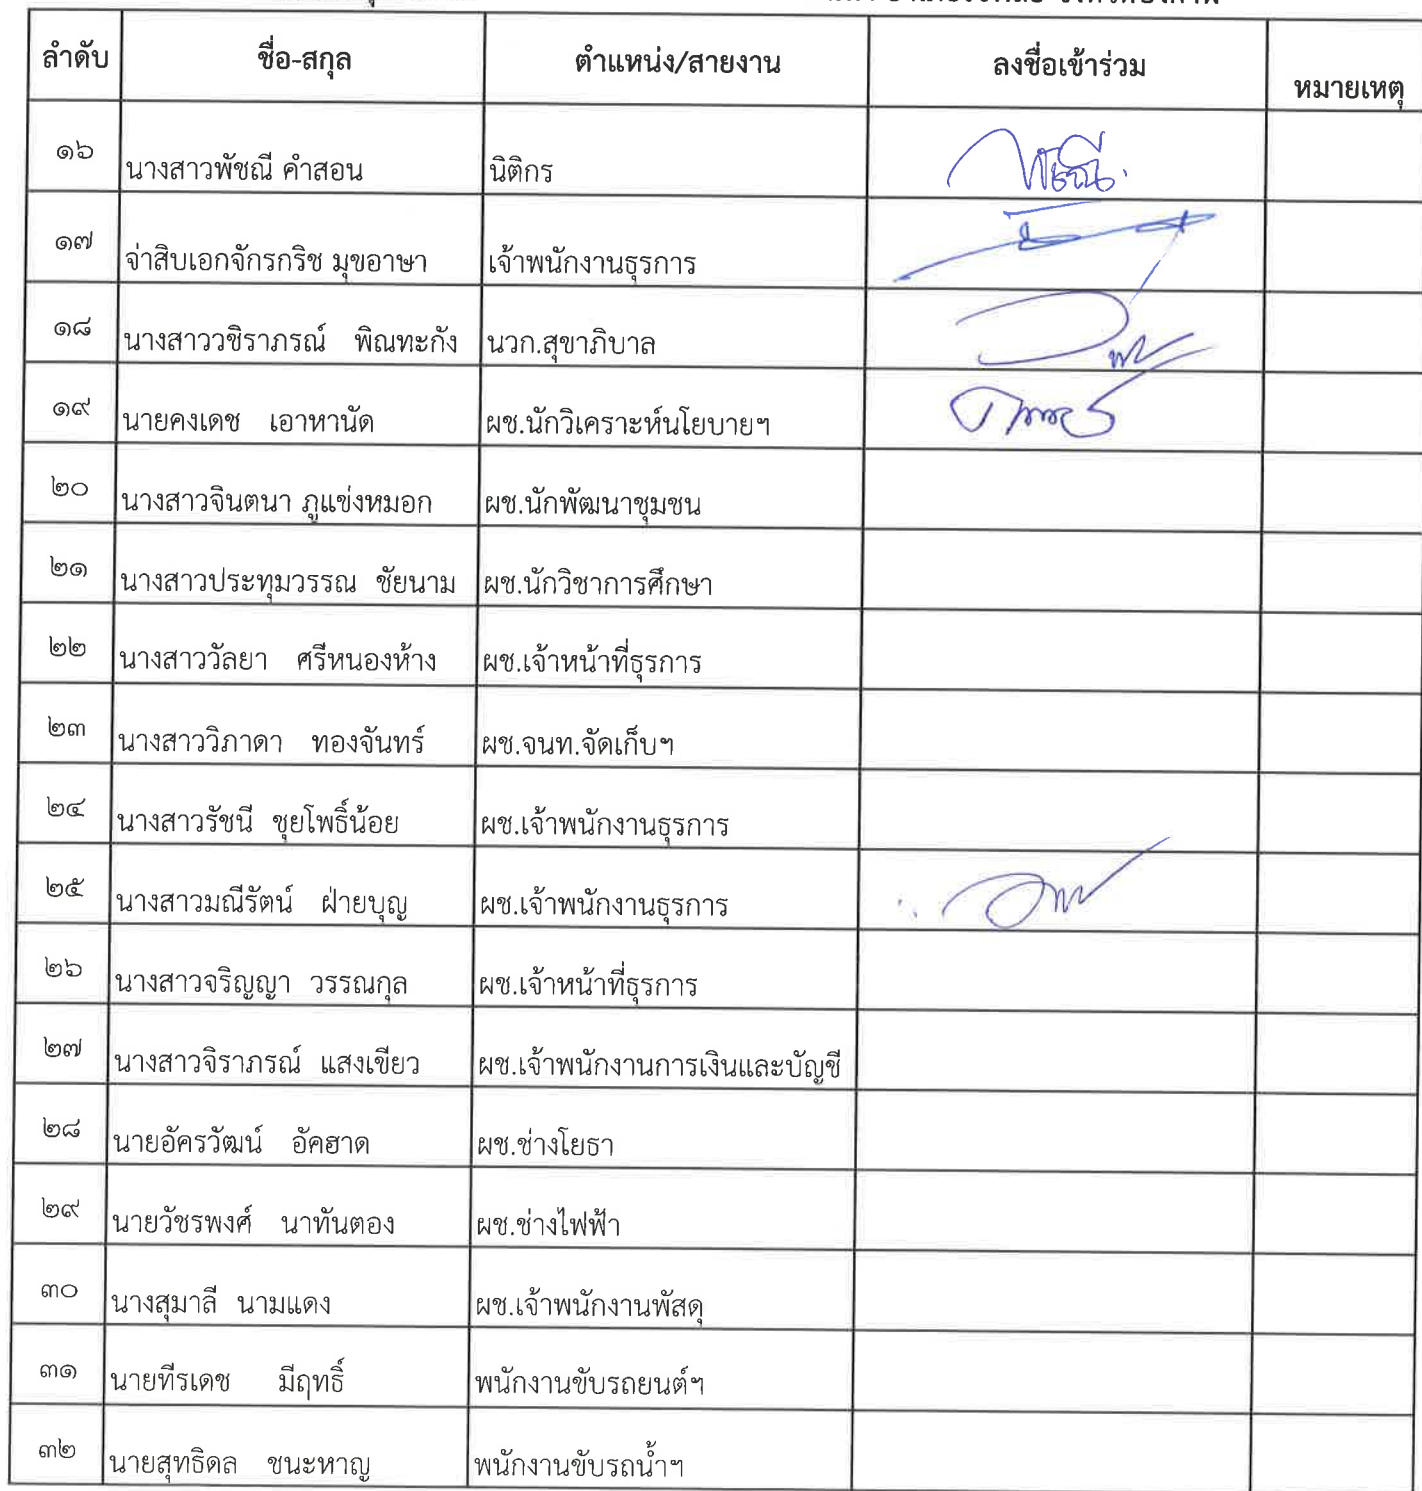 ลำดับ ชื่อ-สกุล ตำแหน่ง/สายงาน ลงชื่อเข้าร่วม หมายเหตุ
๑๖ นางสาวพัชณี คำสอน นิติกร พัชณี
๑๗ จ่าสิบเอกจักรกริช มุขอาษา เจ้าพนักงานธุรการ
๑๘ นางสาววชิราภรณ์ พิณทะกัง นวก.สุขาภิบาล
๑๙ นายคงเดช เอาหานัด ผช.นักวิเคราะห์นโยบายฯ
๒๐ นางสาวจินตนา ภูแข่งหมอก ผช.นักพัฒนาชุมชน
๒๑ นางสาวประทุมวรรณ ชัยนาม ผช.นักวิชาการศึกษา
๒๒ นางสาววัลยา ศรีหนองห้าง ผช.เจ้าหน้าที่ธุรการ
๒๓ นางสาววิภาดา ทองจันทร์ ผช.จนท.จัดเก็บฯ
๒๔ นางสาวรัชนี ชุยโพธิ์น้อย ผช.เจ้าพนักงานธุรการ
๒๕ นางสาวมณีรัตน์ ฝ่ายบุญ ผช.เจ้าพนักงานธุรการ
๒๖ นางสาวจริญญา วรรณกุล ผช.เจ้าหน้าที่ธุรการ
๒๗ นางสาวจิราภรณ์ แสงเขียว ผช.เจ้าพนักงานการเงินและบัญชี
๒๘ นายอัครวัฒน์ อัคฮาด ผช.ช่างโยธา
๒๙ นายวัชรพงศ์ นาทันตอง ผช.ช่างไฟฟ้า
๓๐ นางสุมาลี นามแดง ผช.เจ้าพนักงานพัสดุ
๓๑ นายทีรเดช มีฤทธิ์ พนักงานขับรถยนต์ฯ
๓๒ นายสุทธิดล ชนะหาญ พนักงานขับรถน้ำฯ